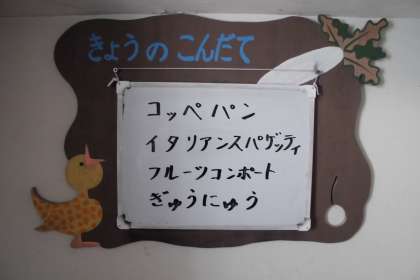 きょうのこんだて
コッペパン
イタリアンスパゲッティ
フルーツコンポート
ぎゅうにゅう